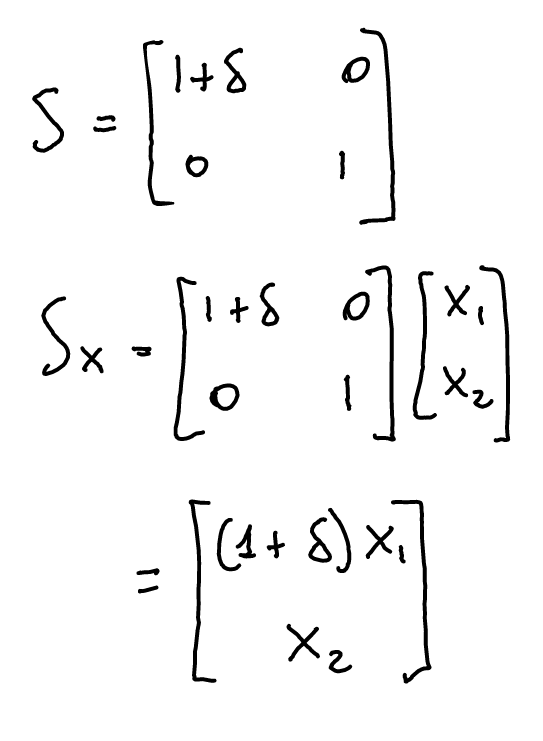 S = [1+δ 0
0 1]
Sx = [1+δ 0
0 1] [x₁
x₂]
= [(1+δ)x₁
x₂]